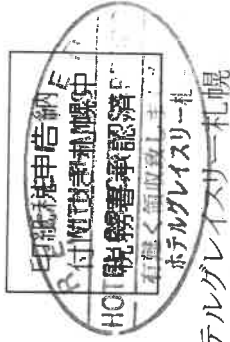 印紙税申告納
付につき札幌中
税務署承認済
HOT
有難く領収致しま
ホテルグレイスリー札
テルグレイスリー札幌